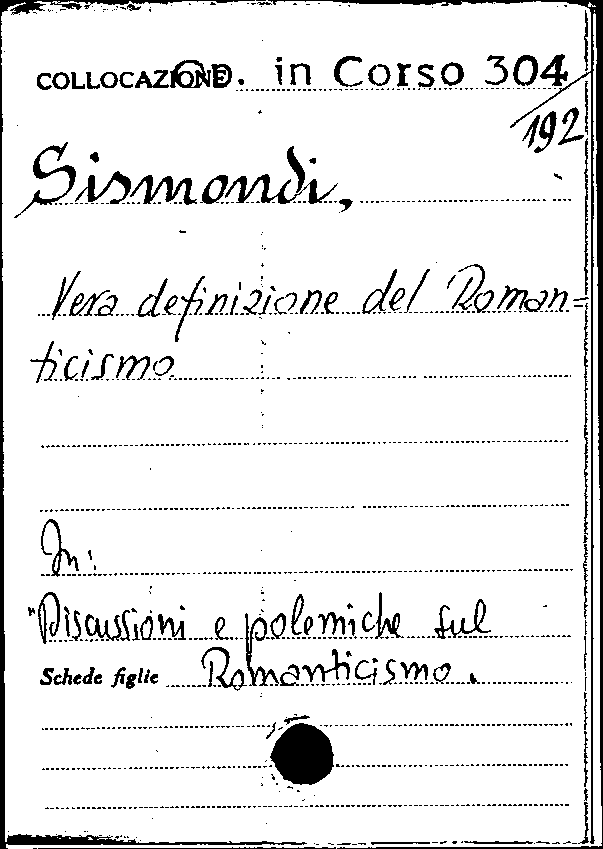 COLLOCAZIONE Op. in Corso 304
192
Sismondi,
Vera definizione del Roman=
ticismo
In:
"Discussioni e polemiche sul
Schede figlie Romanticismo.